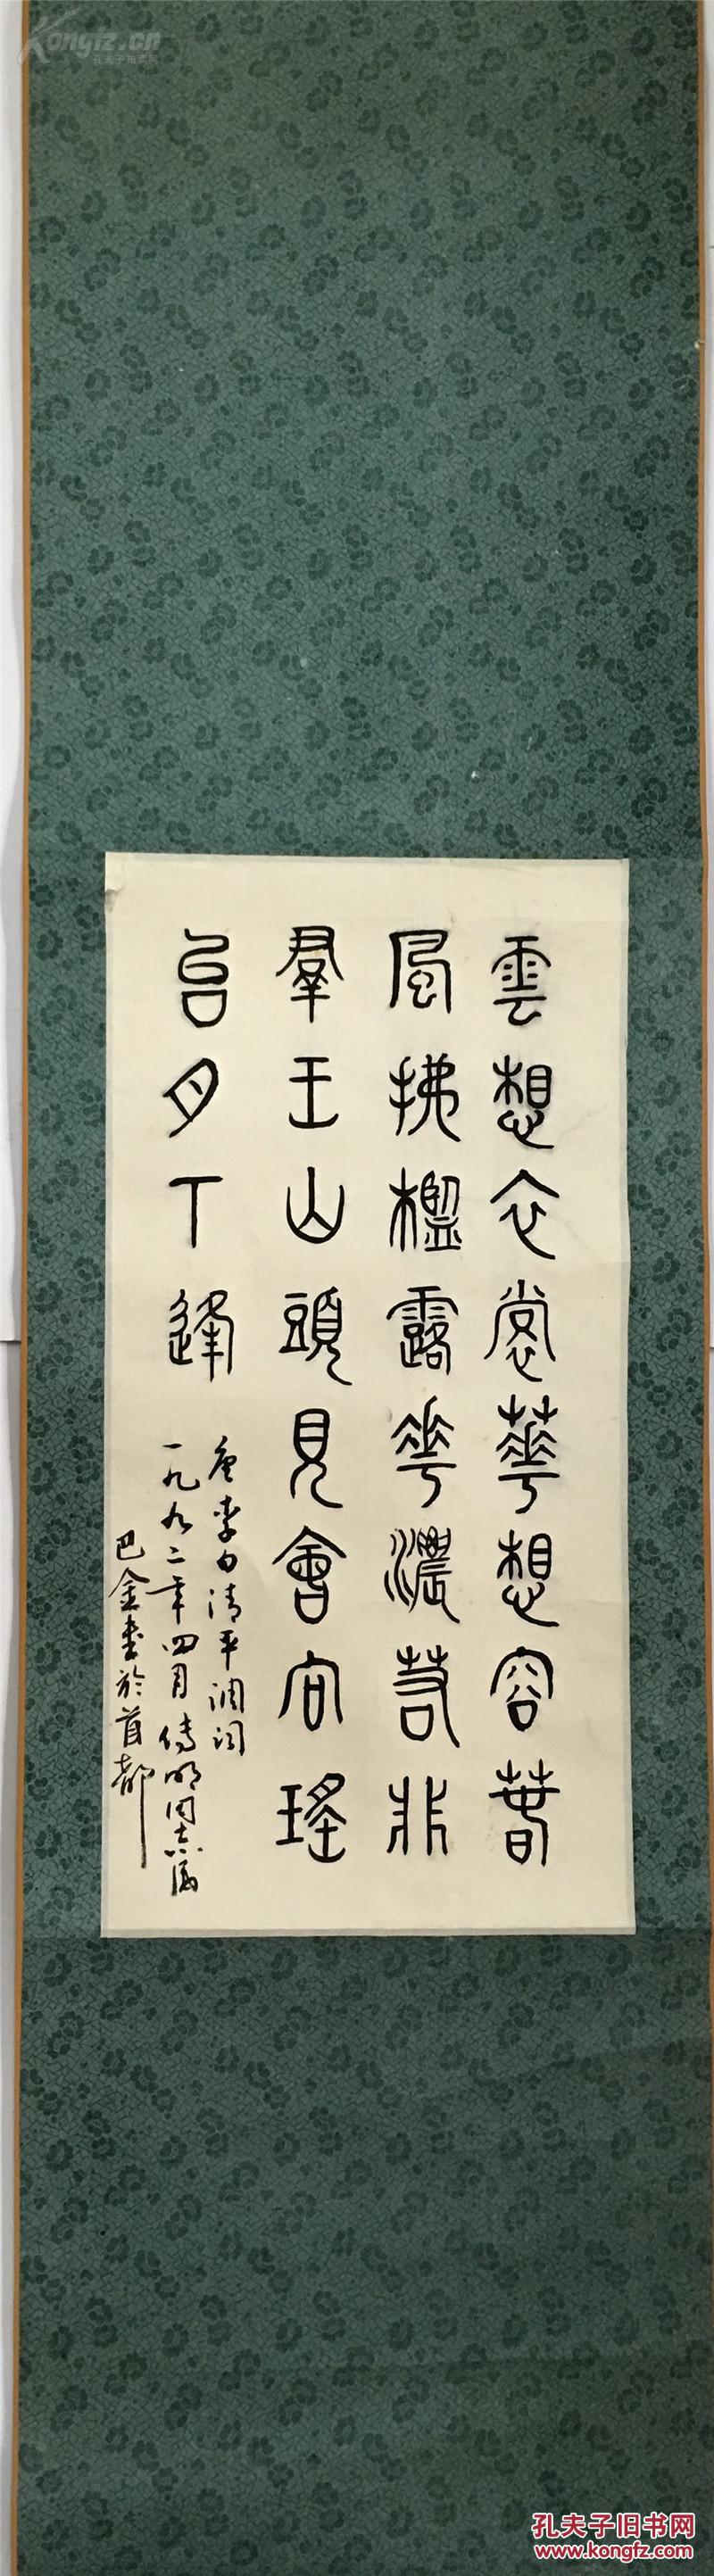 雲想衣裳華想容春
風拂檻露華濃若非
羣玉山頭見會向瑤
台月下逢
唐李白清平調詞
一九九二年四月傳明同志屬
巴金書於首都
Kongfz.cn
孔夫子旧书网
www.kongfz.com